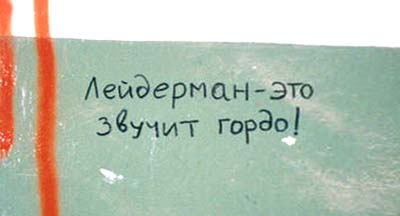 Лейдерман-это
звучит гордо!